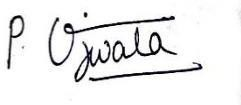 P. Ujwala